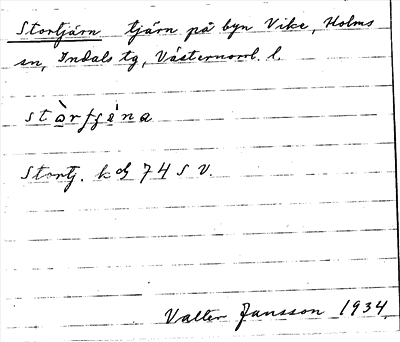 Stortjärn tjärn på byn Vike, Holms
sn, Indals tg, Västernorrl. l.
Stortj. kbl 74 S V.
Valter Jansson 1934.